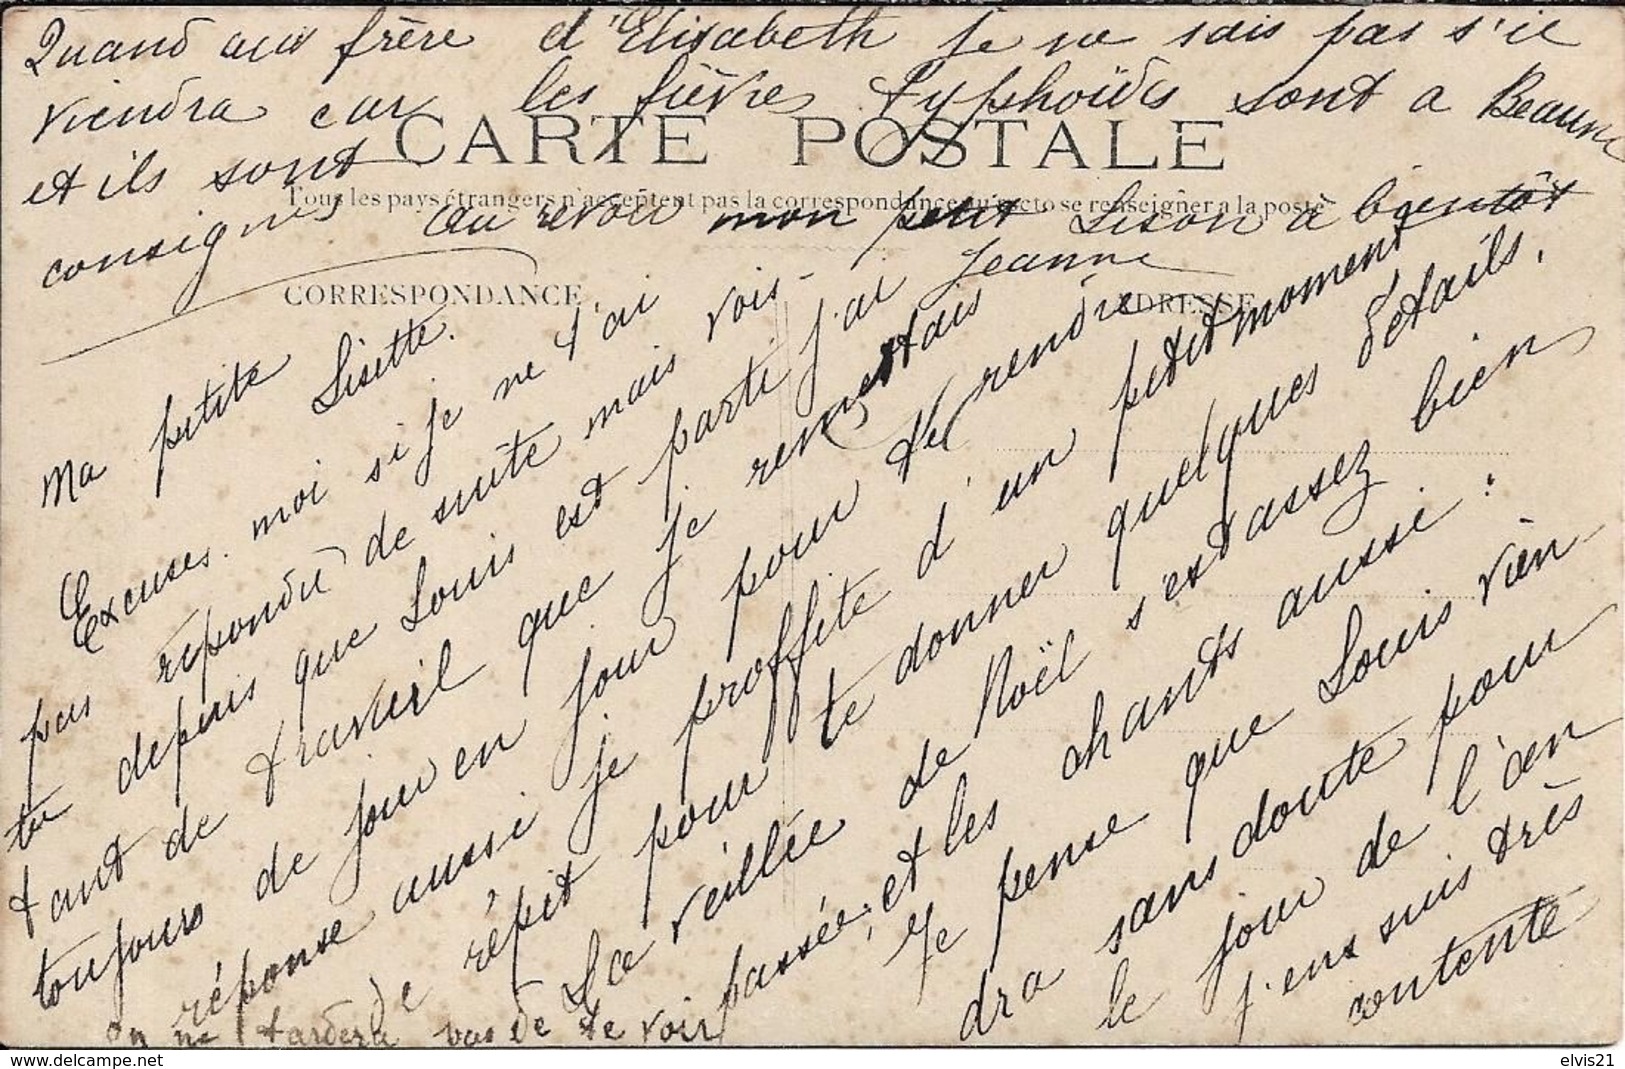 Quand aux frère d'Elisabeth je ne sais pas s'il
viendra car les fièvres typhoïdes sont a Beaune
et ils sont
CARTE POSTALE
Tous les pays étrangers n'acceptent pas la correspondance au recto se renseigner a la poste
consignes au revoir mon petit Lison à bientôt
Jeanne
CORRESPONDANCE
ADRESSE
Ma petite Lisette.
Excuses. moi si je ne t'ai
pas répondu de suite mais vois-
tu depuis que Louis est parti j'ai
tant de travail que je remettais
toujours de jour en jour pour te rendre
réponse aussi je proffite d'un petit moment
de répit pour te donner quelques détails.
La veillée de Noël s'est assez bien
passée; et les chants aussi :
Je pense que Louis vien-
dra sans doute pour
le jour de l'an
j'ens suis très
contente
on ne tardera pas de te voir
elvis21